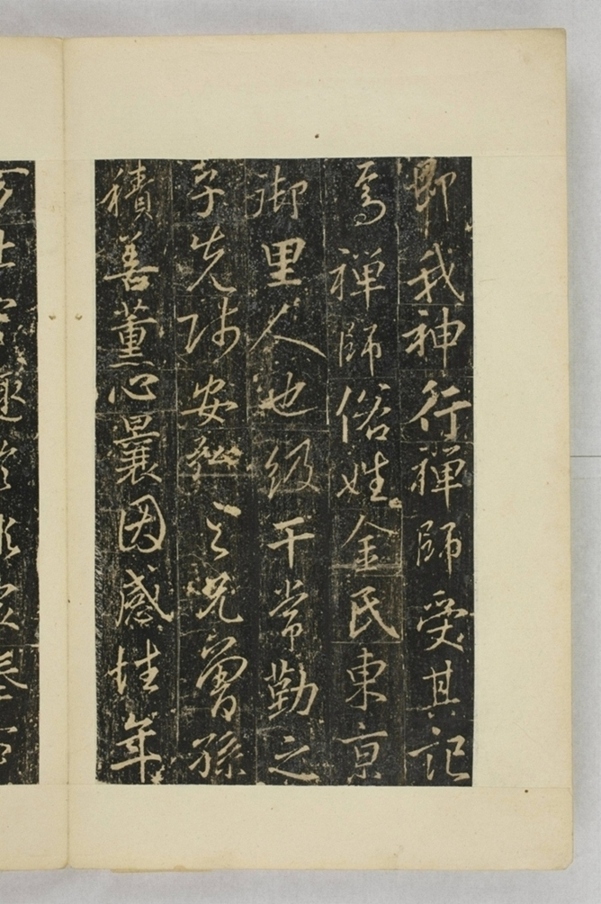 即我神行禪師受其記
焉禪師俗姓金氏東京
御里人也級干常勤之
子先師安弘之兄曾孫
積善薰心曩因感性年